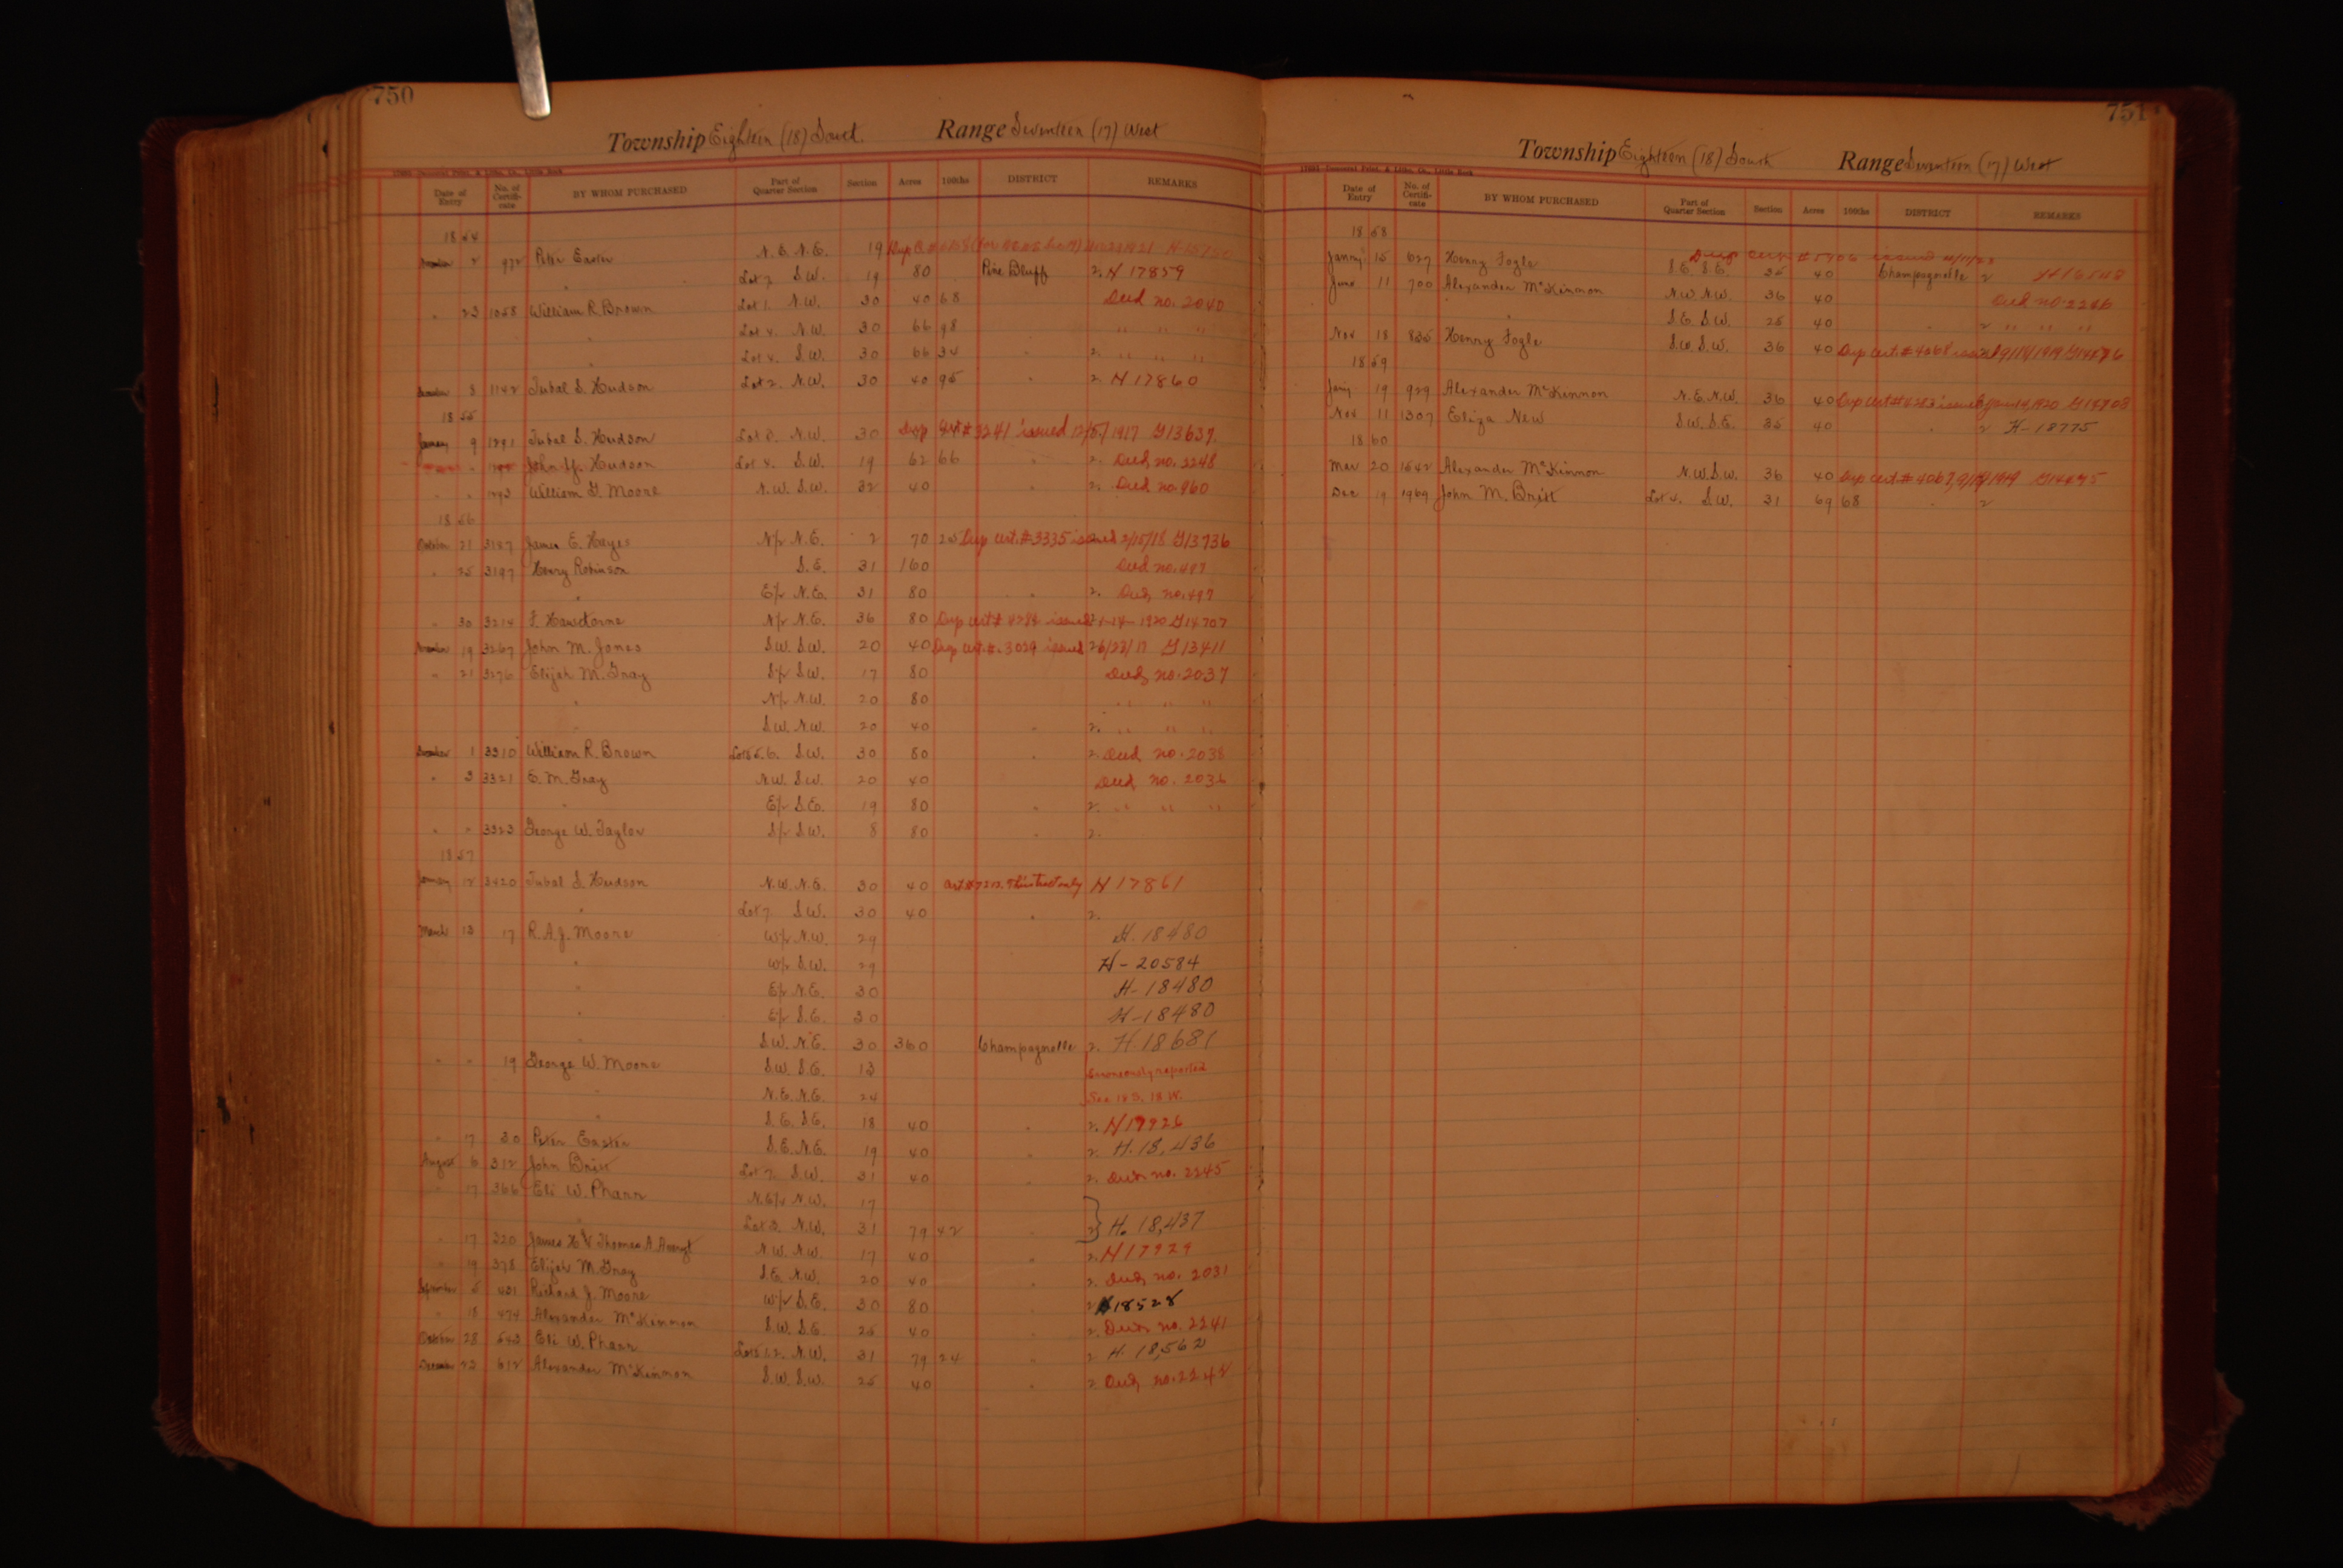 750
Township Eighteen (18) South Range Seventeen (17) West
Date of Entry No. of Certificate BY WHOM PURCHASED Part of Quarter Section Section Acres 100ths DISTRICT REMARKS
1854
2 972 Peter Easter N.E. N.E. 19
" Lot 7 S.W. 19 80 Pine Bluff 2. H 17859
" 23 1058 William R. Brown Lot 1. N.W. 30 40 68 Deed no. 2040
" Lot 4. N.W. 30 66 98 " " "
" Lot 4. S.W. 30 66 34 " 2. " " "
8 1142 Tubal S. Hudson Lot 2. N.W. 30 40 95 " 2 H 17860
1855
January 9 1291 Tubal S. Hudson Lot 3. N.W. 30 Dup Cert # 3241 issued 12/5/1917 G13637
" John Y. Hudson Lot 4. S.W. 19 62 66 " 2. Deed no. 2248
" " 1293 William G. Moore N.W. S.W. 32 40 " 2. Deed no. 960
1856
October 21 3187 James E. Hayes N/2 N.E. 2 70 25 Dup Cert. # 3335 issued 2/15/18 G13736
" 25 3197 Henry Robinson S.E. 31 160 Deed no. 497
" E/2 N.E. 31 80 " 2. Deed no. 497
" 30 3214 F. Hawthorne N/2 N.E. 36 80 Dup Cert # 4284 issued 1-14-1920 G14707
November 19 3267 John M. Jones S.W. S.W. 20 40 Dup Cert. # 3029 issued 6/23/17 G13411
" 21 3276 Elijah M. Gray S/2 S.W. 17 80 Deed no. 2037
" N/2 N.W. 20 80 " " "
" S.W. N.W. 20 40 " 2. " " "
December 1 3310 William R. Brown Lots 5.6. S.W. 30 80 " 2. Deed no. 2038
" 3 3321 E. M. Gray N.W. S.W. 20 40 Deed no. 2036
" E/2 S.E. 19 80 " 2. " " "
" " 3323 George W. Taylor S/2 S.W. 8 80 " 2.
1857
January 12 3420 Tubal S. Hudson N.W. N.E. 30 40 Cert # 7212. This tract only H 17861
" Lot 7 S.W. 30 40 " 2.
March 13 17 R. A. J. Moore W/2 N.W. 29 H. 18480
" W/2 S.W. 29 H-20584
" E/2 N.E. 30 H-18480
" E/2 S.E. 30 H-18480
" S.W. N.E. 30 360 Champagnolle 2. H 18681
" " 19 George W. Moore S.W. S.E. 13 Erroneously reported
" N.E. N.E. 24 See 18 S. 18 W.
" S.E. S.E. 18 40 " 2. H 17926
" 17 30 Peter Easter S.E. N.E. 19 40 " 2 H. 18,436
August 6 312 John Britt Lot 2. S.W. 31 40 " 2. Deed no. 2245
" 17 366 Eli W. Pharr N.E/4 N.W. 17
" Lot 3. N.W. 31 79 42 " 2 H. 18,437
" 17 320 James H & Thomas A. N.W. N.W. 17 40 " 2. H 17929
" 19 378 Elijah M. Gray S.E. N.W. 20 40 " 2. Deed no. 2031
September 5 431 Richard J. Moore W/2 S.E. 30 80 " 2 H 18528
" 18 474 Alexander McKinnon S.W. S.E. 25 40 " 2. Deed no. 2241
October 28 543 Eli W. Pharr Lots 1.2. N.W. 31 79 24 " 2 H. 18,562
December 23 612 Alexander McKinnon S.W. S.W. 25 40 " 2 Deed no. 2242
751
Township Eighteen (18) South Range Seventeen (17) West
Date of Entry No. of Certificate BY WHOM PURCHASED Part of Quarter Section Section Acres 100ths DISTRICT REMARKS
1858
Dup Cert # 5906 issued
Jan'ry 15 627 Henry Fogle S.E. S.E. 35 40 Champagnolle 2
June 11 700 Alexander McKinnon N.W. N.W. 36 40 Deed no. 2246
" S.E. S.W. 25 40 " 2 " " "
Nov 18 835 Henry Fogle S.W. S.W. 36 40 Dup Cert. # 4068 issued 9/18/1919 G14476
1859
Jan'y 19 929 Alexander McKinnon N.E. N.W. 36 40 Dup Cert # issued Jan 14, 1920 G14708
Nov 11 1307 Eliza New S.W. S.E. 35 40 " 2 H-18775
1860
Mar 20 1642 Alexander McKinnon N.W. S.W. 36 40 Dup Cert. # 4067, 9/18/1919 G14475
Dec 19 1969 John M. Britt Lot 4. S.W. 31 69 68 " 2